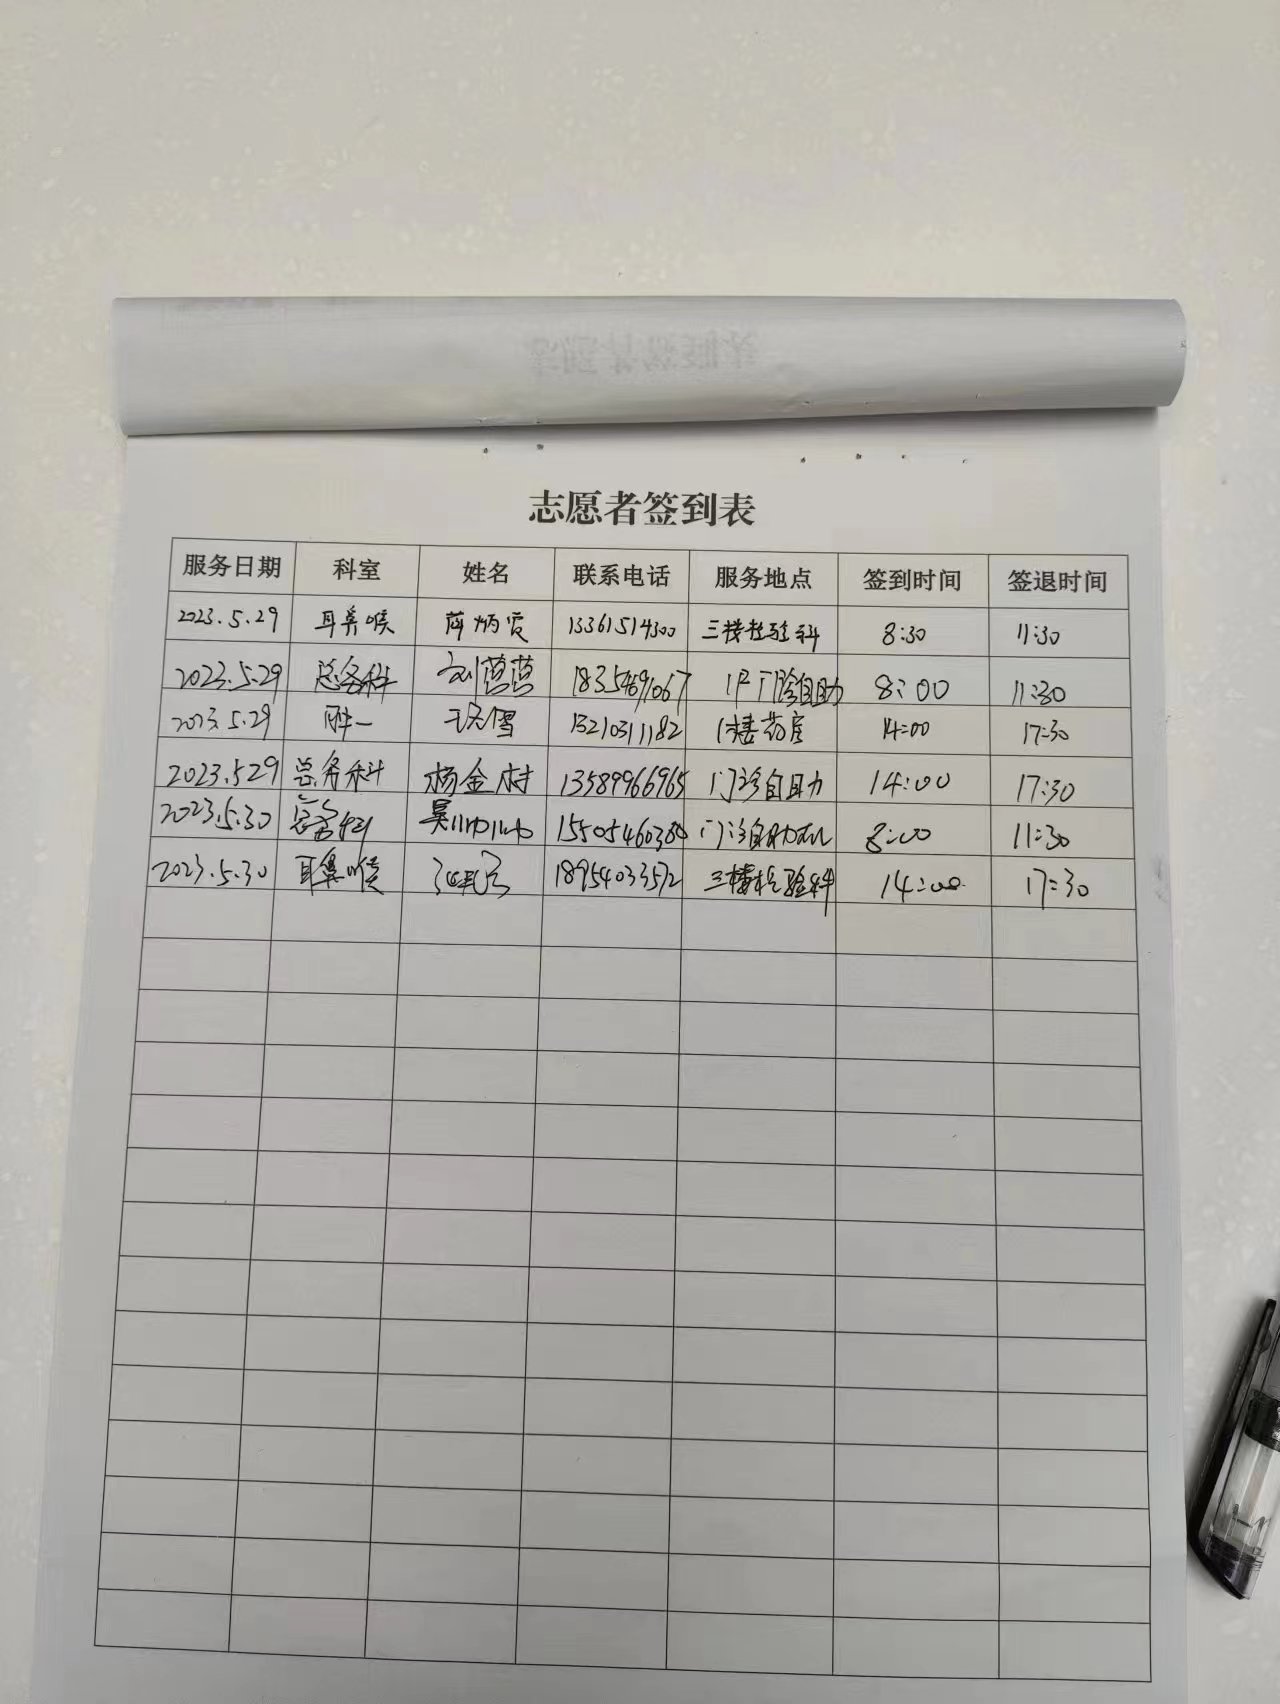 志愿者签到表
服务日期 科室 姓名 联系电话 服务地点 签到时间 签退时间
2023.5.29 耳鼻喉 13361514300 三楼检验科 8:30 11:30
2023.5.29 总务科 刘莒莒 18354691067 1F门诊自助 8:00 11:30
2023.5.29 雪 13210311182 1楼药房 14:00 17:30
2023.5.29 总务科 杨金树 13589966965 门诊自助 14:00 17:30
2023.5.30 总务科 吴 15505460380 门诊自助机 8:00 11:30
2023.5.30 耳鼻喉 18954033572 三楼检验科 14:00 17:30